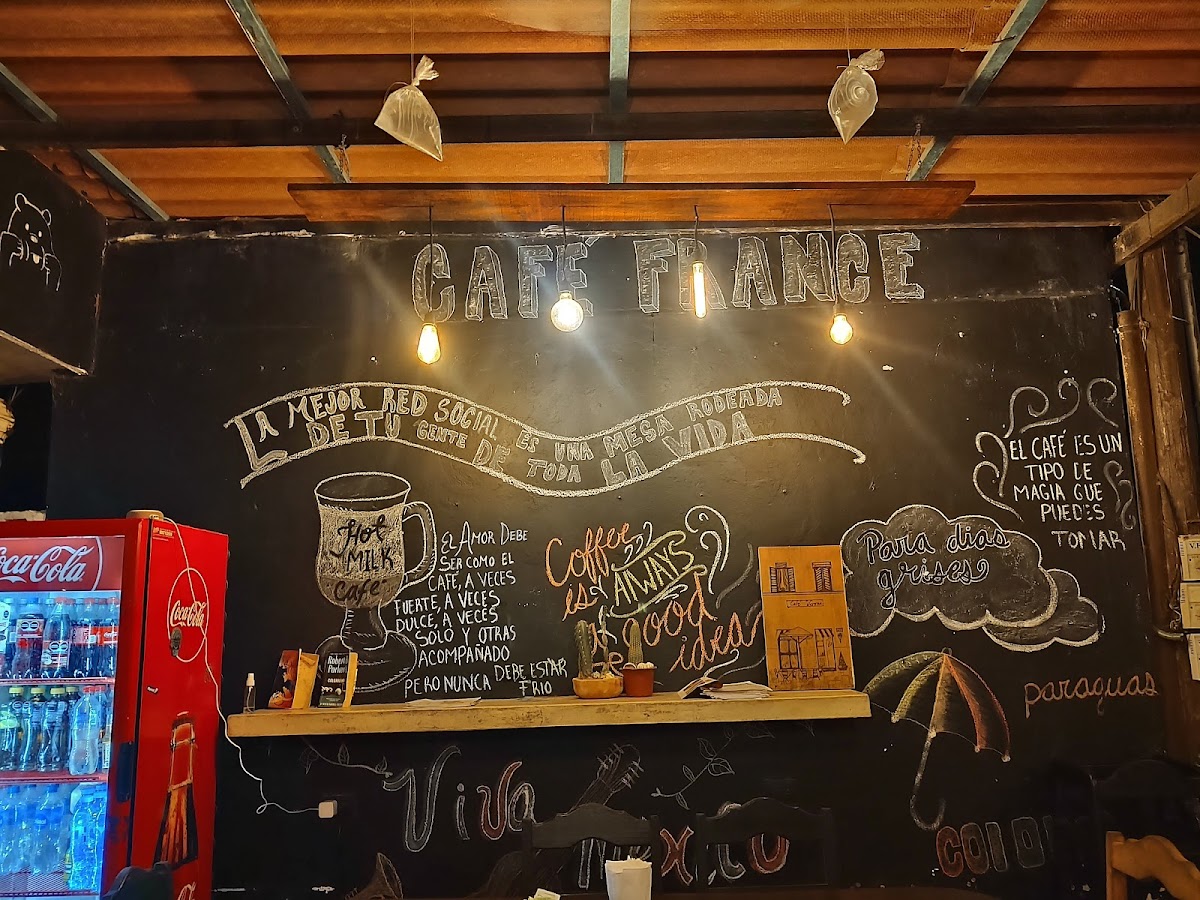 CAFÉ FRANCE
LA MEJOR RED SOCIAL ES UNA MESA RODEADA
DE TU GENTE DE TODA LA VIDA
Hot
MILK
Café
El AMOR DEBE
SER COMO EL
CAFÉ, A VECES
FUERTE, A VECES
DULCE, A VECES
SOLO Y OTRAS
ACOMPAÑADO
PERO NUNCA DEBE ESTAR
FRIO
Coffee
is AlWAYS
a good
idea
EL CAFÉ ES UN
TIPO DE
MAGIA QUE
PUEDES
TOMAR
Para dias
grises
paraguas
COLOR
Viva
Coca-Cola
Coca-Cola